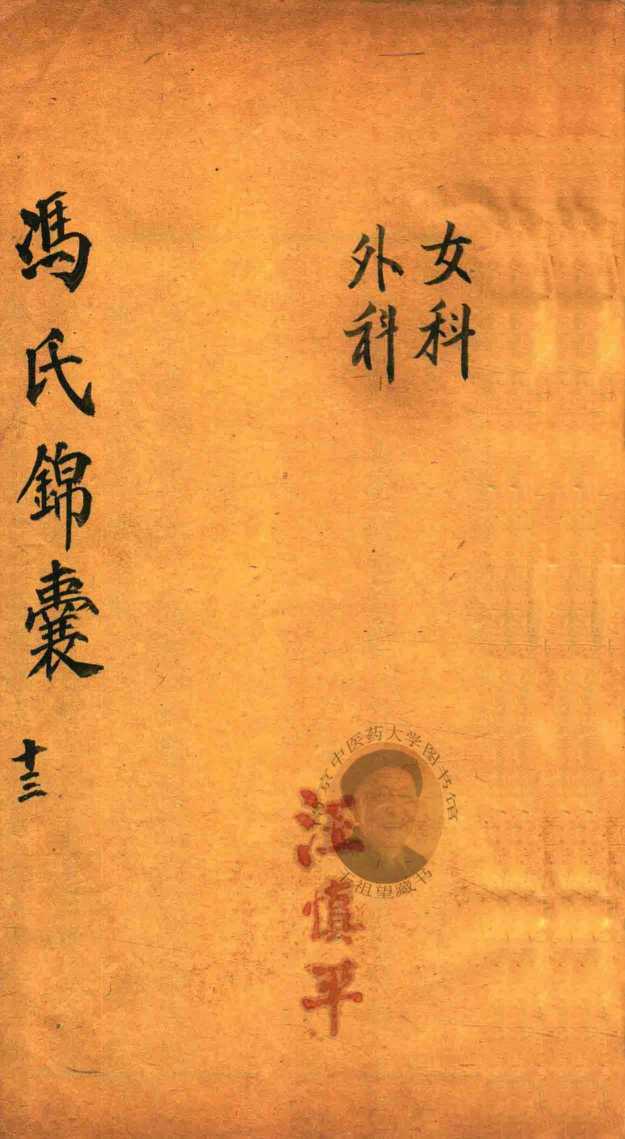 女科
外科
馮氏錦囊
十三
汪慎平
京中医药大学图书馆
王祖望藏书